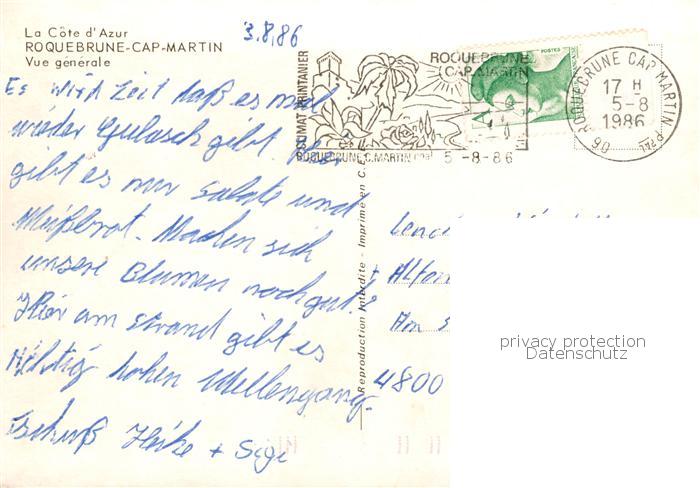 La Côte d'Azur
ROQUEBRUNE-CAP-MARTIN
Vue générale
3.8.86
CLIMAT PRINTANIER
ROQUEBRUNE
CAP-MARTIN
ROQUEBRUNE C.MARTIN PPAL
5-8-86
POSTES
A
06 ROQUEBRUNE CAP MARTIN P.PAL
17 H
5-8
1986
Es wird Zeit daß es mal
wieder Gulasch gibt. Hier
gibt es nur Salate und
Weißbrot. Machen sich
unsere Blumen noch gut?
Hier am Strand gibt es
hohen Wellengang.
Tschüß Heike + Sigi
Reproduction Interdite - Imprimé en C.
+ Alfon
Am S
4800
privacy protection
Datenschutz